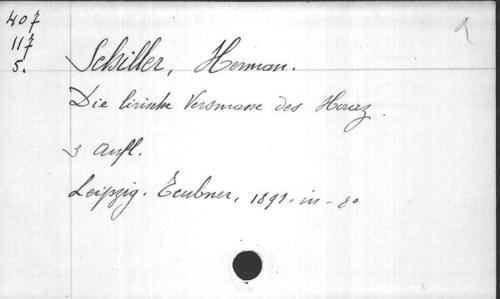 407
117
5.
Schiller, Herman.
Die lirische Versmasse des Horaz.
3 Aufl.
Leipzig. Teubner, 1891. in-80